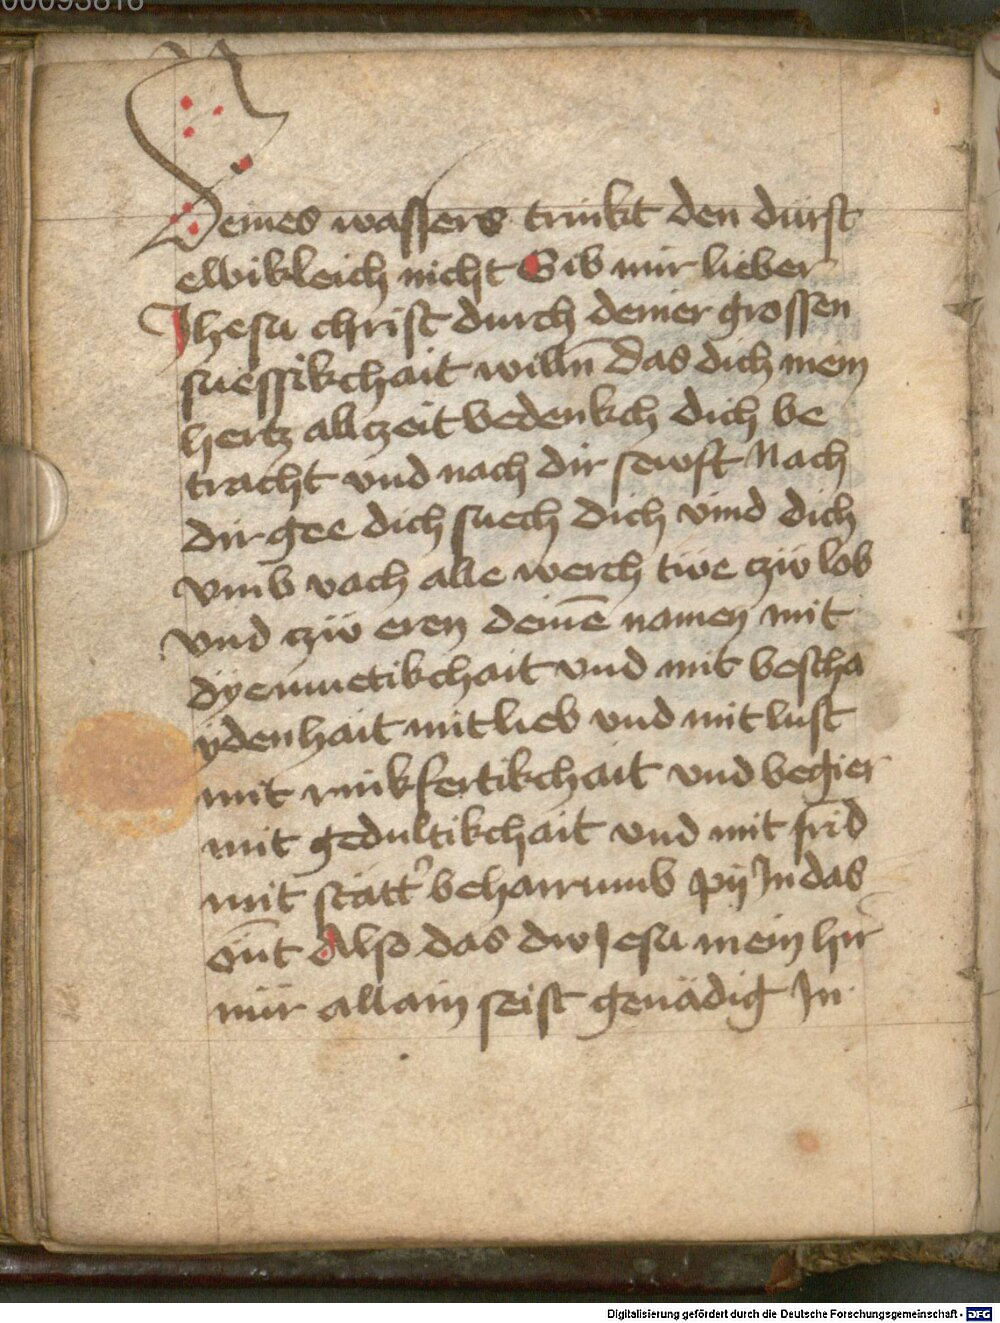 00093816
Deines wassers trinkt den dürst
ewikleich nicht Gib mir lieber
Jhesu christ durch deiner grossen
suessikchait willn̄ Das dich mein
hertz allczeit bedenkch dich be
tracht vnd nach dir sewft Nach
dir gee dich suech dich vind dich
vmb vach alle werch tüe czü lob
vnd czü eren deinē namen mit
dyemuetikchait vnd mit bescha
ydenhait mit lieb vnd mit lust
mit rinkfertikchait vnd begier
mit gedultikchait vnd mit frid
mit stätt' beharrumb pỹ Jn das
ent Also das dw Jesu mein h'r
mir allain seist genädig Jn
Digitalisierung gefördert durch die Deutsche Forschungsgemeinschaft - DFG